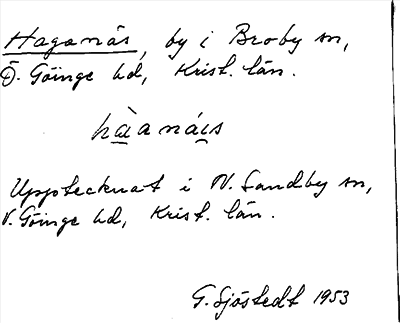 Haganäs, by i Broby sn,
Ö. Göinge hd, Krist. län.
hàanáis
Upptecknat i N. Sandby sn,
V. Göinge hd, Krist. län.
G. Sjöstedt 1953